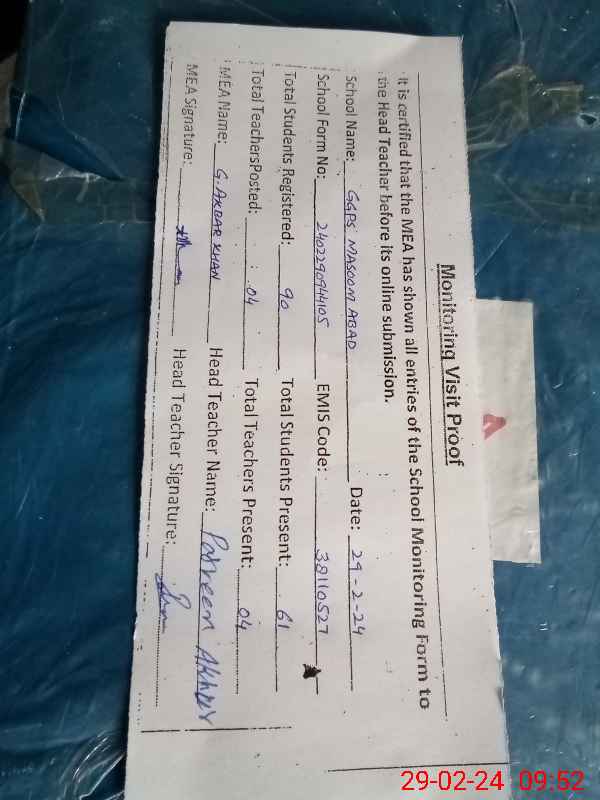 Monitoring Visit Proof
It is certified that the MEA has shown all entries of the School Monitoring Form to
the Head Teacher before its online submission.
School Name: GGPS MASOOM ABAD Date: 29-2-24
School Form No: 2402290944105 EMIS Code: 38110527
Total Students Registered: 90 Total Students Present: 61
Total TeachersPosted: 04 Total Teachers Present: 04
MEA Name: G. AKBAR KHAN Head Teacher Name: Parveen Akhter
MEA Signature: Head Teacher Signature:
29-02-24 09:52